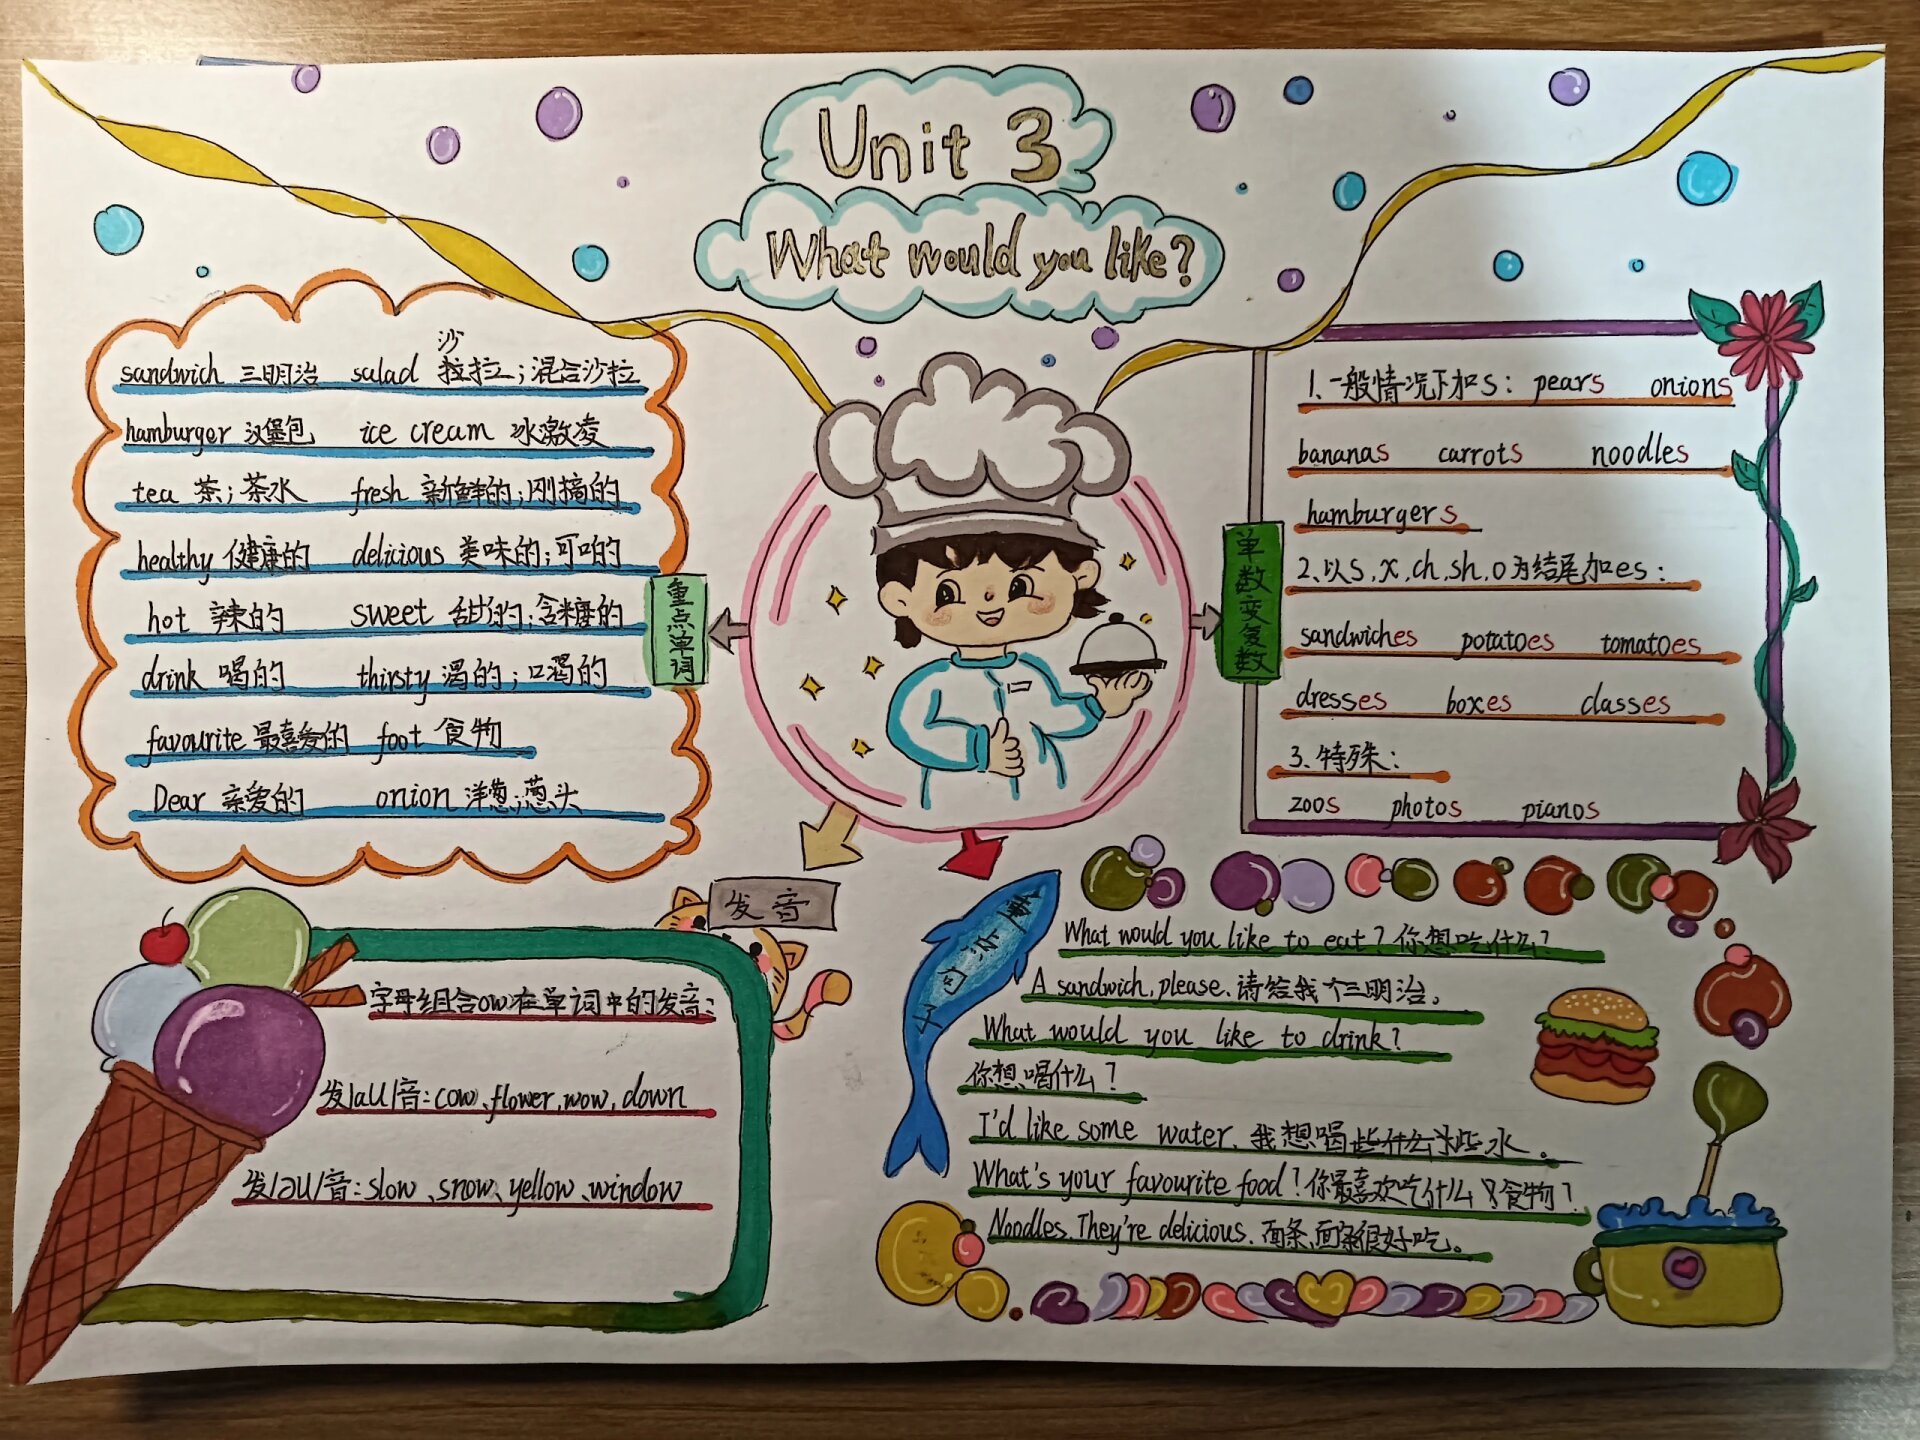 Unit 3
What would you like?
沙
sandwich 三明治 salad 拉拉；混合沙拉
hamburger 汉堡包 ice cream 冰激凌
tea 茶；茶水 fresh 新鲜的；刚摘的
healthy 健康的 delicious 美味的；可口的
hot 辣的 sweet 甜的；含糖的
drink 喝的 thirsty 渴的；口渴的
favourite 最喜爱的 foot 食物
Dear 亲爱的 onion 洋葱；葱头
重点单词
单数变复数
1、一般情况下加s： pears onions
bananas carrots noodles
hamburgers
2、以s,x,ch,sh,o为结尾加es：
sandwiches potatoes tomatoes
dresses boxes classes
3、特殊：
zoos photos pianos
发音
字母组合ow在单词中的发音：
发/aU/音：cow、flower,wow,down
发/əU/音：slow、snow、yellow、window
重点句子
What would you like to eat？你想吃什么？
A sandwich,please.请给我个三明治。
What would you like to drink？
你想喝什么？
I'd like some water. 我想喝些什么水。
What's your favourite food！你最喜欢吃什么食物？
Noodles.They're delicious. 面条,面条很好吃。